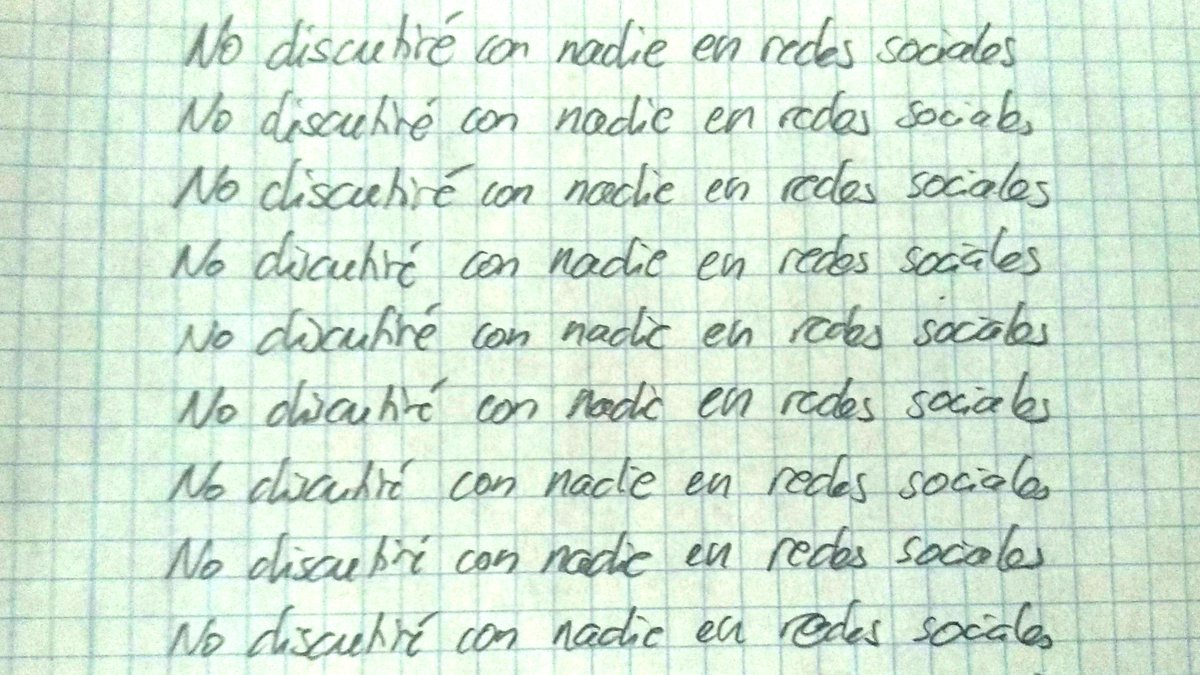 No discutiré con nadie en redes sociales
No discutiré con nadie en redes sociales
No discutiré con nadie en redes sociales
No discutiré con nadie en redes sociales
No discutiré con nadie en redes sociales
No discutiré con nadie en redes sociales
No discutiré con nadie en redes sociales
No discutiré con nadie en redes sociales
No discutiré con nadie en redes sociales